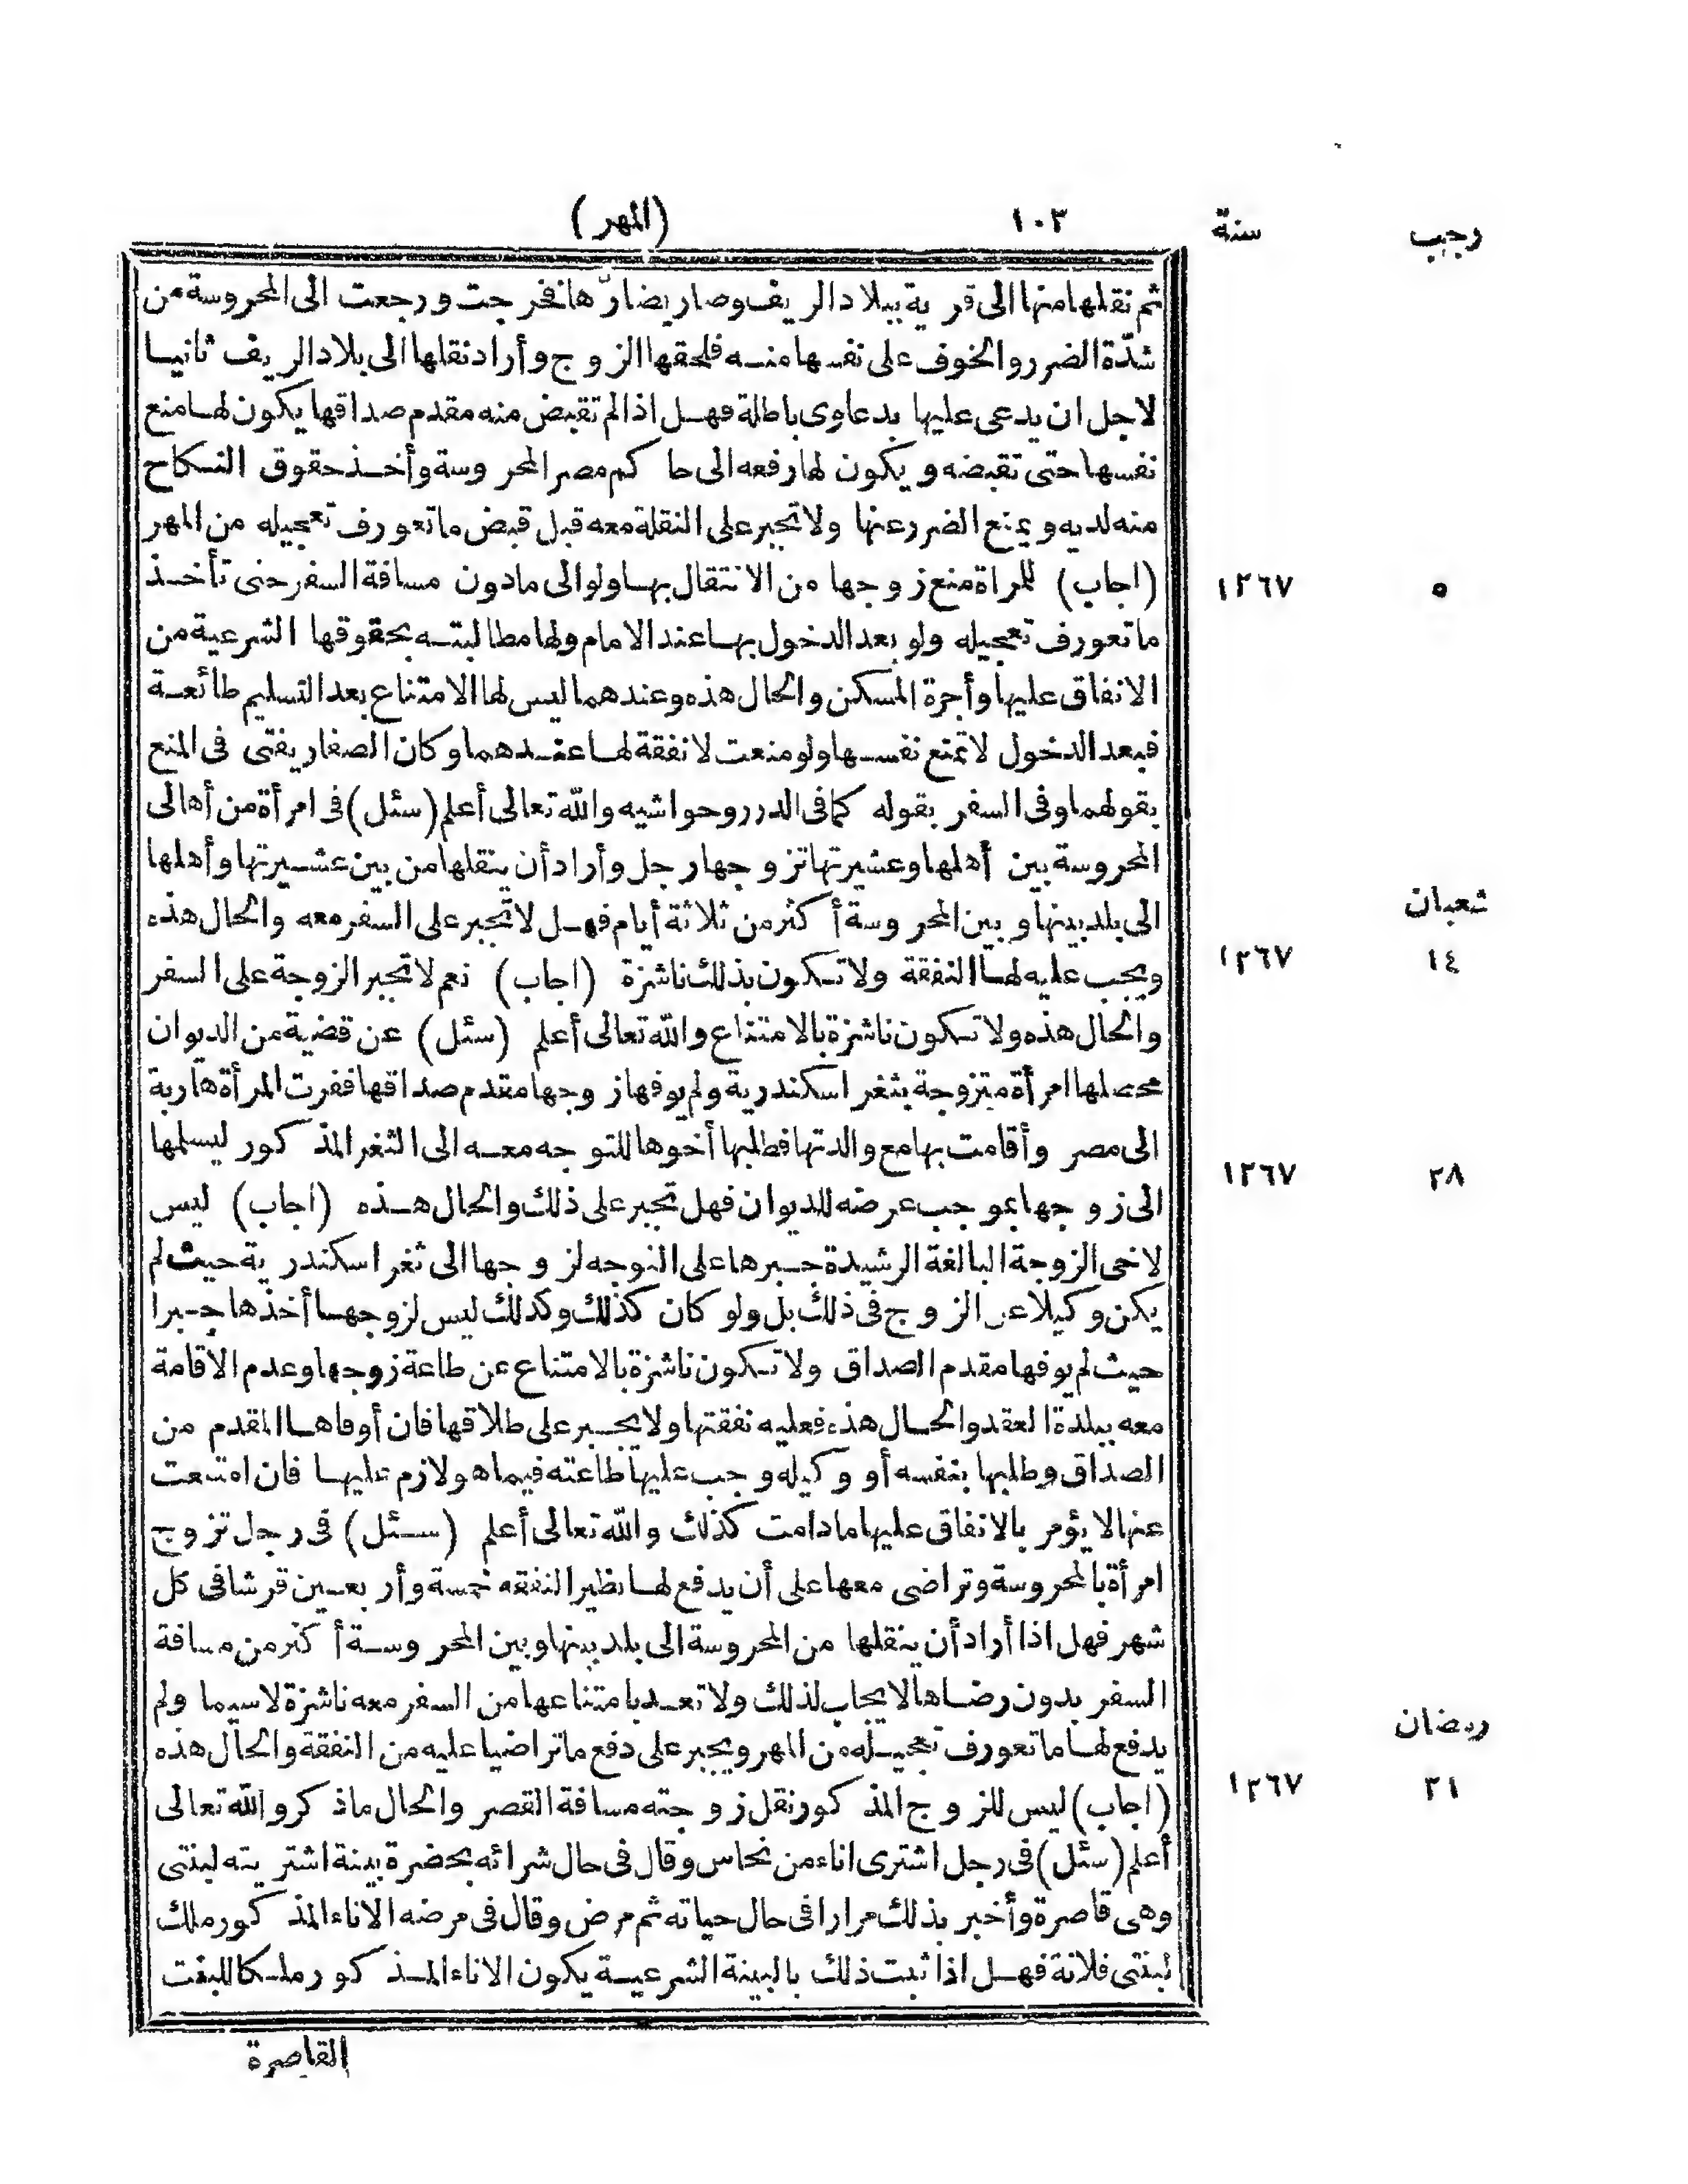 رجب
سنة
١٠٣
(المهر)
ثم نقلها منها الى قرية ببلاد الريف وصار يضارّها فخرجت ورجعت الى المحروسة من
شدّة الضرر والخوف على نفسها منه فلحقها الزوج وأراد نقلها الى بلاد الريف ثانيا
لاجل ان يدعى عليها بدعاوى باطلة فهل اذا لم تقبض منه مقدم صداقها يكون لها منع
نفسها حتى تقبضه ويكون لها رفعه الى حاكم مصر المحروسة وأخذ حقوق النكاح
منه لديه ويمنع الضرر عنها ولا تجبر على النقلة معه قبل قبض ما تعورف تعجيله من المهر
(اجاب) للمراة منع زوجها من الانتقال بها ولو الى مادون مسافة السفر حتى تأخذ
١٢٦٧
٥
ما تعورف تعجيله ولو بعد الدخول بها عند الامام ولها مطالبته بحقوقها الشرعية من
الانفاق عليها وأجرة المسكن والحال هذه وعندهما ليس لها الامتناع بعد التسليم طائعة
فبعد الدخول لا تمنع نفسها ولو منعت لا نفقة لها عندهما وكان الصفار يفتى فى المنع
بقولهما وفى السفر بقوله كما فى الدرر وحواشيه والله تعالى أعلم (سئل) فى امرأة من أهالى
المحروسة بين أهلها وعشيرتها تزوجها رجل وأراد أن ينقلها من بين عشيرتها وأهلها
شعبان
الى بلد بينها وبين المحروسة أكثر من ثلاثة أيام فهل لا تجبر على السفر معه والحال هذه
ويجب عليه لها النفقة ولا تكون بذلك ناشزة (اجاب) نعم لا تجبر الزوجة على السفر
١٢٦٧
١٤
والحال هذه ولا تكون ناشزة بالامتناع والله تعالى أعلم (سئل) عن قضية من الديوان
محصلها امرأة متزوجة بثغر اسكندرية ولم يوفها زوجها مقدم صداقها ففرت المرأة هاربة
الى مصر وأقامت بها مع والدتها فطلبها أخوها للتوجه معه الى الثغر المذكور ليسلمها
الى زوجها بموجب عرضه للديوان فهل تجبر على ذلك والحال هذه (اجاب) ليس
١٢٦٧
٢٨
لاخى الزوجة البالغة الرشيدة جبرها على التوجه لزوجها الى ثغر اسكندرية حيث لم
يكن وكيلا عن الزوج فى ذلك بل ولو كان كذلك وكذلك ليس لزوجها أخذها جبرا
حيث لم يوفها مقدم الصداق ولا تكون ناشزة بالامتناع عن طاعة زوجها وعدم الاقامة
معه ببلدة العقد والحال هذه فعليه نفقتها ولا يجبر على طلاقها فان أوفاها المقدم من
الصداق وطلبها بنفسه أو وكيله وجب عليها طاعته فيما هو لازم عليها فان امتنعت
عنها لا يؤمر بالانفاق عليها ما دامت كذلك والله تعالى أعلم (سئل) فى رجل تزوج
امرأة بالمحروسة وتراضى معها على أن يدفع لها نظير النفقه خمسة وأربعين قرشا فى كل
شهر فهل اذا أراد أن ينقلها من المحروسة الى بلد بينها وبين المحروسة أكثر من مسافة
السفر بدون رضاها لا يجاب لذلك ولا تعد بامتناعها من السفر معه ناشزة لاسيما ولم
رمضان
يدفع لها ما تعورف تعجيله من المهر ويجبر على دفع ما تراضيا عليه من النفقة والحال هذه
(اجاب) ليس للزوج المذكور نقل زوجته مسافة القصر والحال ماذكر والله تعالى
١٢٦٧
٢١
أعلم (سئل) فى رجل اشترى اناء من نحاس وقال فى حال شرائه بحضرة بينة اشتريته لبنتى
وهى قاصرة وأخبر بذلك مرارا فى حال حياته ثم مرض وقال فى مرضه الاناء المذكور ملك
لبنتى فلانة فهل اذا ثبت ذلك بالبينة الشرعية يكون الاناء المذكور ملكا للبنت
القاصرة